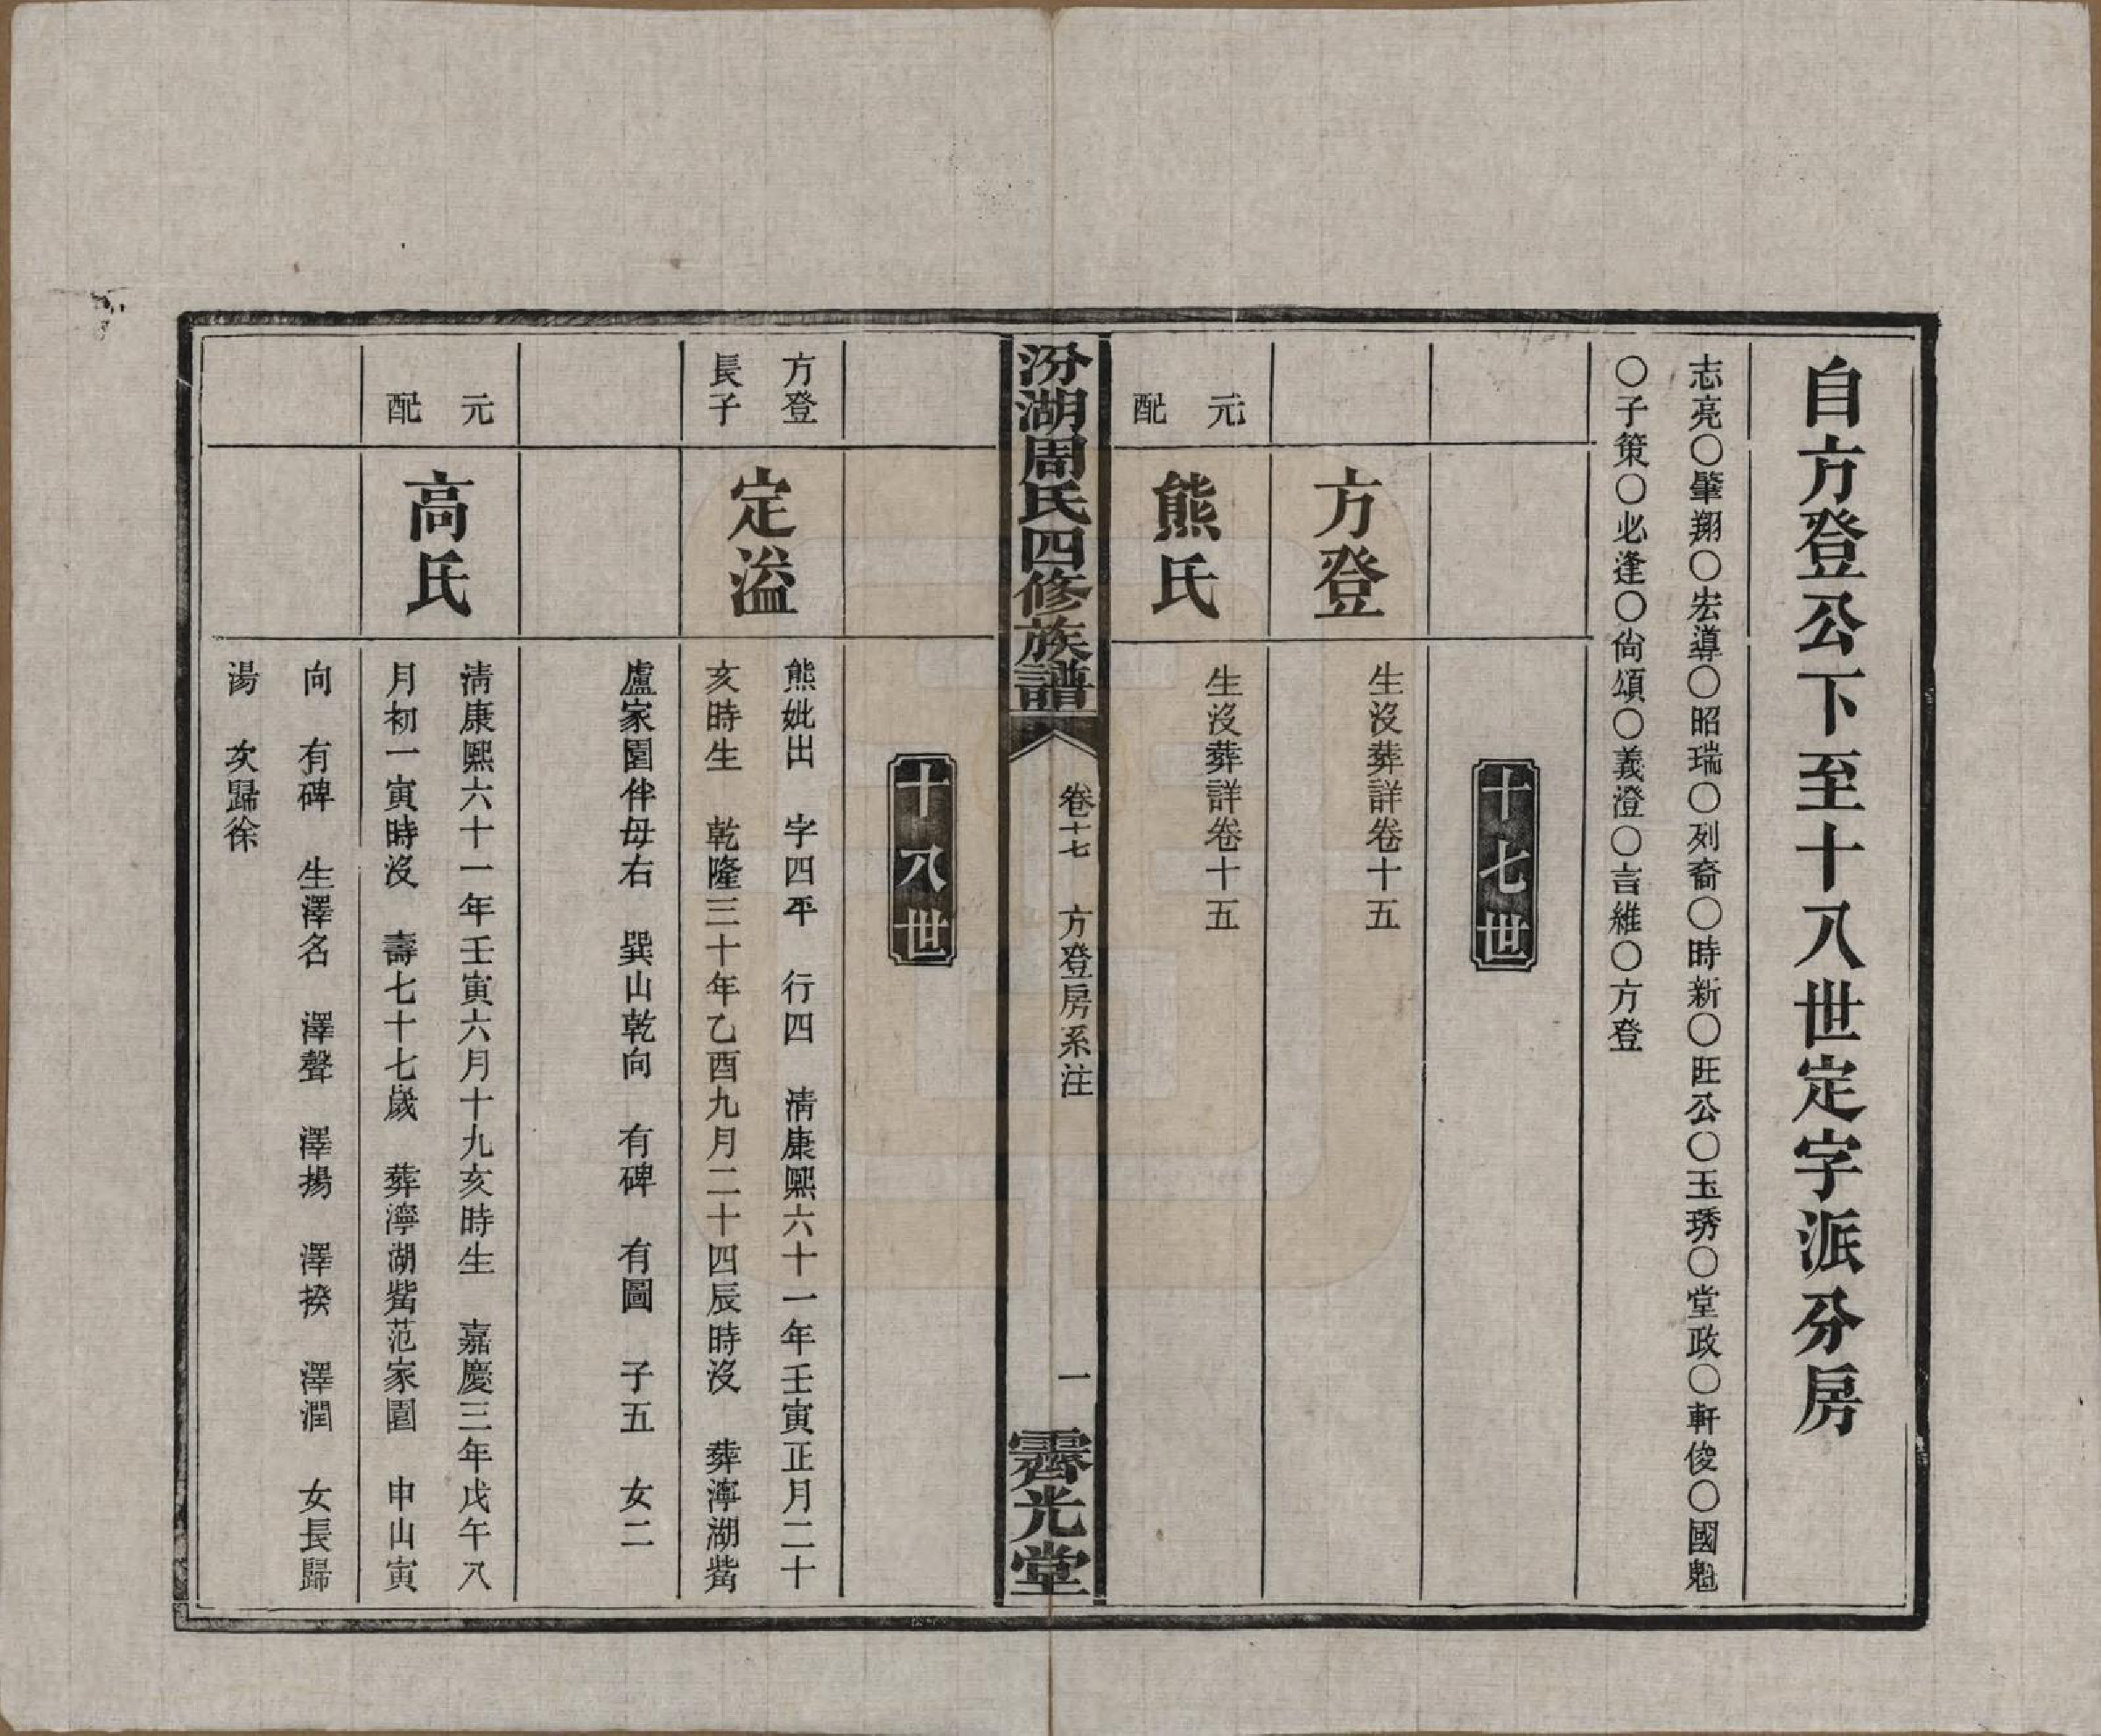 自方登公下至十八世定字派分房
志亮〇肇翔〇宏導〇昭瑞〇列裔〇時新〇旺公〇玉琇〇堂政〇軒俊〇國魁
〇子策〇必逢〇尙頌〇義澄〇言維〇方登
十七世
方登
生沒葬詳卷十五
元配
熊氏
生沒葬詳卷十五
汾湖周氏四修族譜
卷十七 方登房系注
一
霽光堂
十八世
方登長子
定溢
熊妣出 字四平 行四 淸康熙六十一年壬寅正月二十
亥時生 乾隆三十年乙酉九月二十四辰時沒 葬濘湖觜
盧家園伴母右 巽山乾向 有碑 有圖 子五 女二
元配
高氏
淸康熙六十一年壬寅六月十九亥時生 嘉慶三年戊午八
月初一寅時沒 壽七十七歲 葬濘湖觜范家園 申山寅
向 有碑 生澤名 澤聲 澤揚 澤揆 澤潤 女長歸
湯 次歸徐